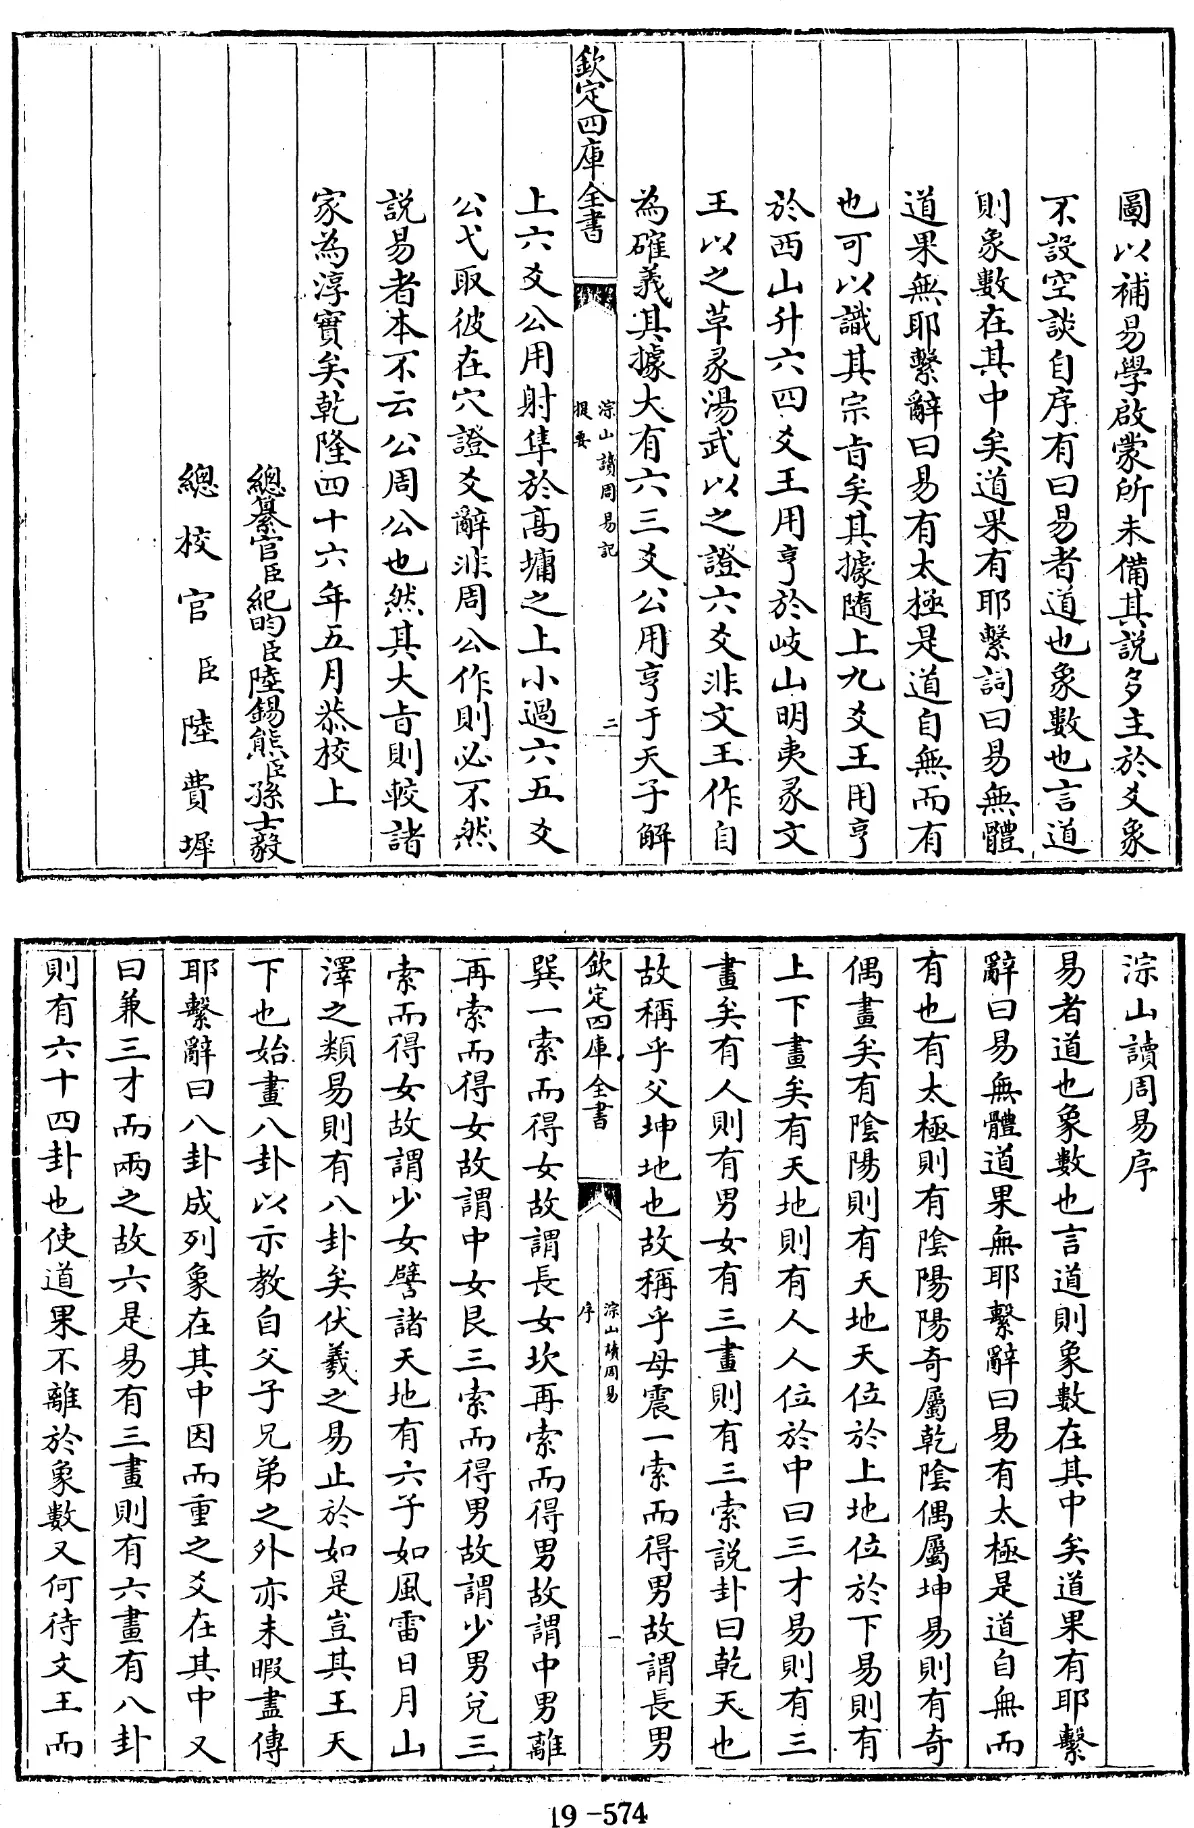 圖以補易學啟蒙所未備其説多主於爻象
不設空談自序有曰易者道也象數也言道
則象數在其中矣道果有耶繫詞曰易無體
道果無耶繫辭曰易有太極是道自無而有
也可以識其宗旨矣其據隨上九爻王用亨
於西山升六四爻王用亨於岐山明夷彖文
王以之革彖湯武以之證六爻非文王作自
為確義其據大有六三爻公用亨于天子解
欽定四庫全書
淙山讀周易記
提要
二
上六爻公用射隼於髙墉之上小過六五爻
公弋取彼在穴證爻辭非周公作則必不然
説易者本不云公周公也然其大旨則較諸
家為淳實矣乾隆四十六年五月恭校上
總纂官臣紀昀臣陸錫熊臣孫士毅
總校官臣陸費墀
淙山讀周易序
易者道也象數也言道則象數在其中矣道果有耶繫
辭曰易無體道果無耶繫辭曰易有太極是道自無而
有也有太極則有陰陽陽奇屬乾陰偶屬坤易則有奇
偶畫矣有陰陽則有天地天位於上地位於下易則有
上下畫矣有天地則有人人位於中曰三才易則有三
畫矣有人則有男女有三畫則有三索説卦曰乾天也
故稱乎父坤地也故稱乎母震一索而得男故謂長男
欽定四庫全書
淙山讀周易
序
一
巽一索而得女故謂長女坎再索而得男故謂中男離
再索而得女故謂中女艮三索而得男故謂少男兌三
索而得女故謂少女譬諸天地有六子如風雷日月山
澤之類易則有八卦矣伏羲之易止於如是豈其王天
下也始畫八卦以示教自父子兄弟之外亦未暇盡傳
耶繫辭曰八卦成列象在其中因而重之爻在其中又
曰兼三才而兩之故六是易有三畫則有六畫有八卦
則有六十四卦也使道果不離於象數又何待文王而
19-574